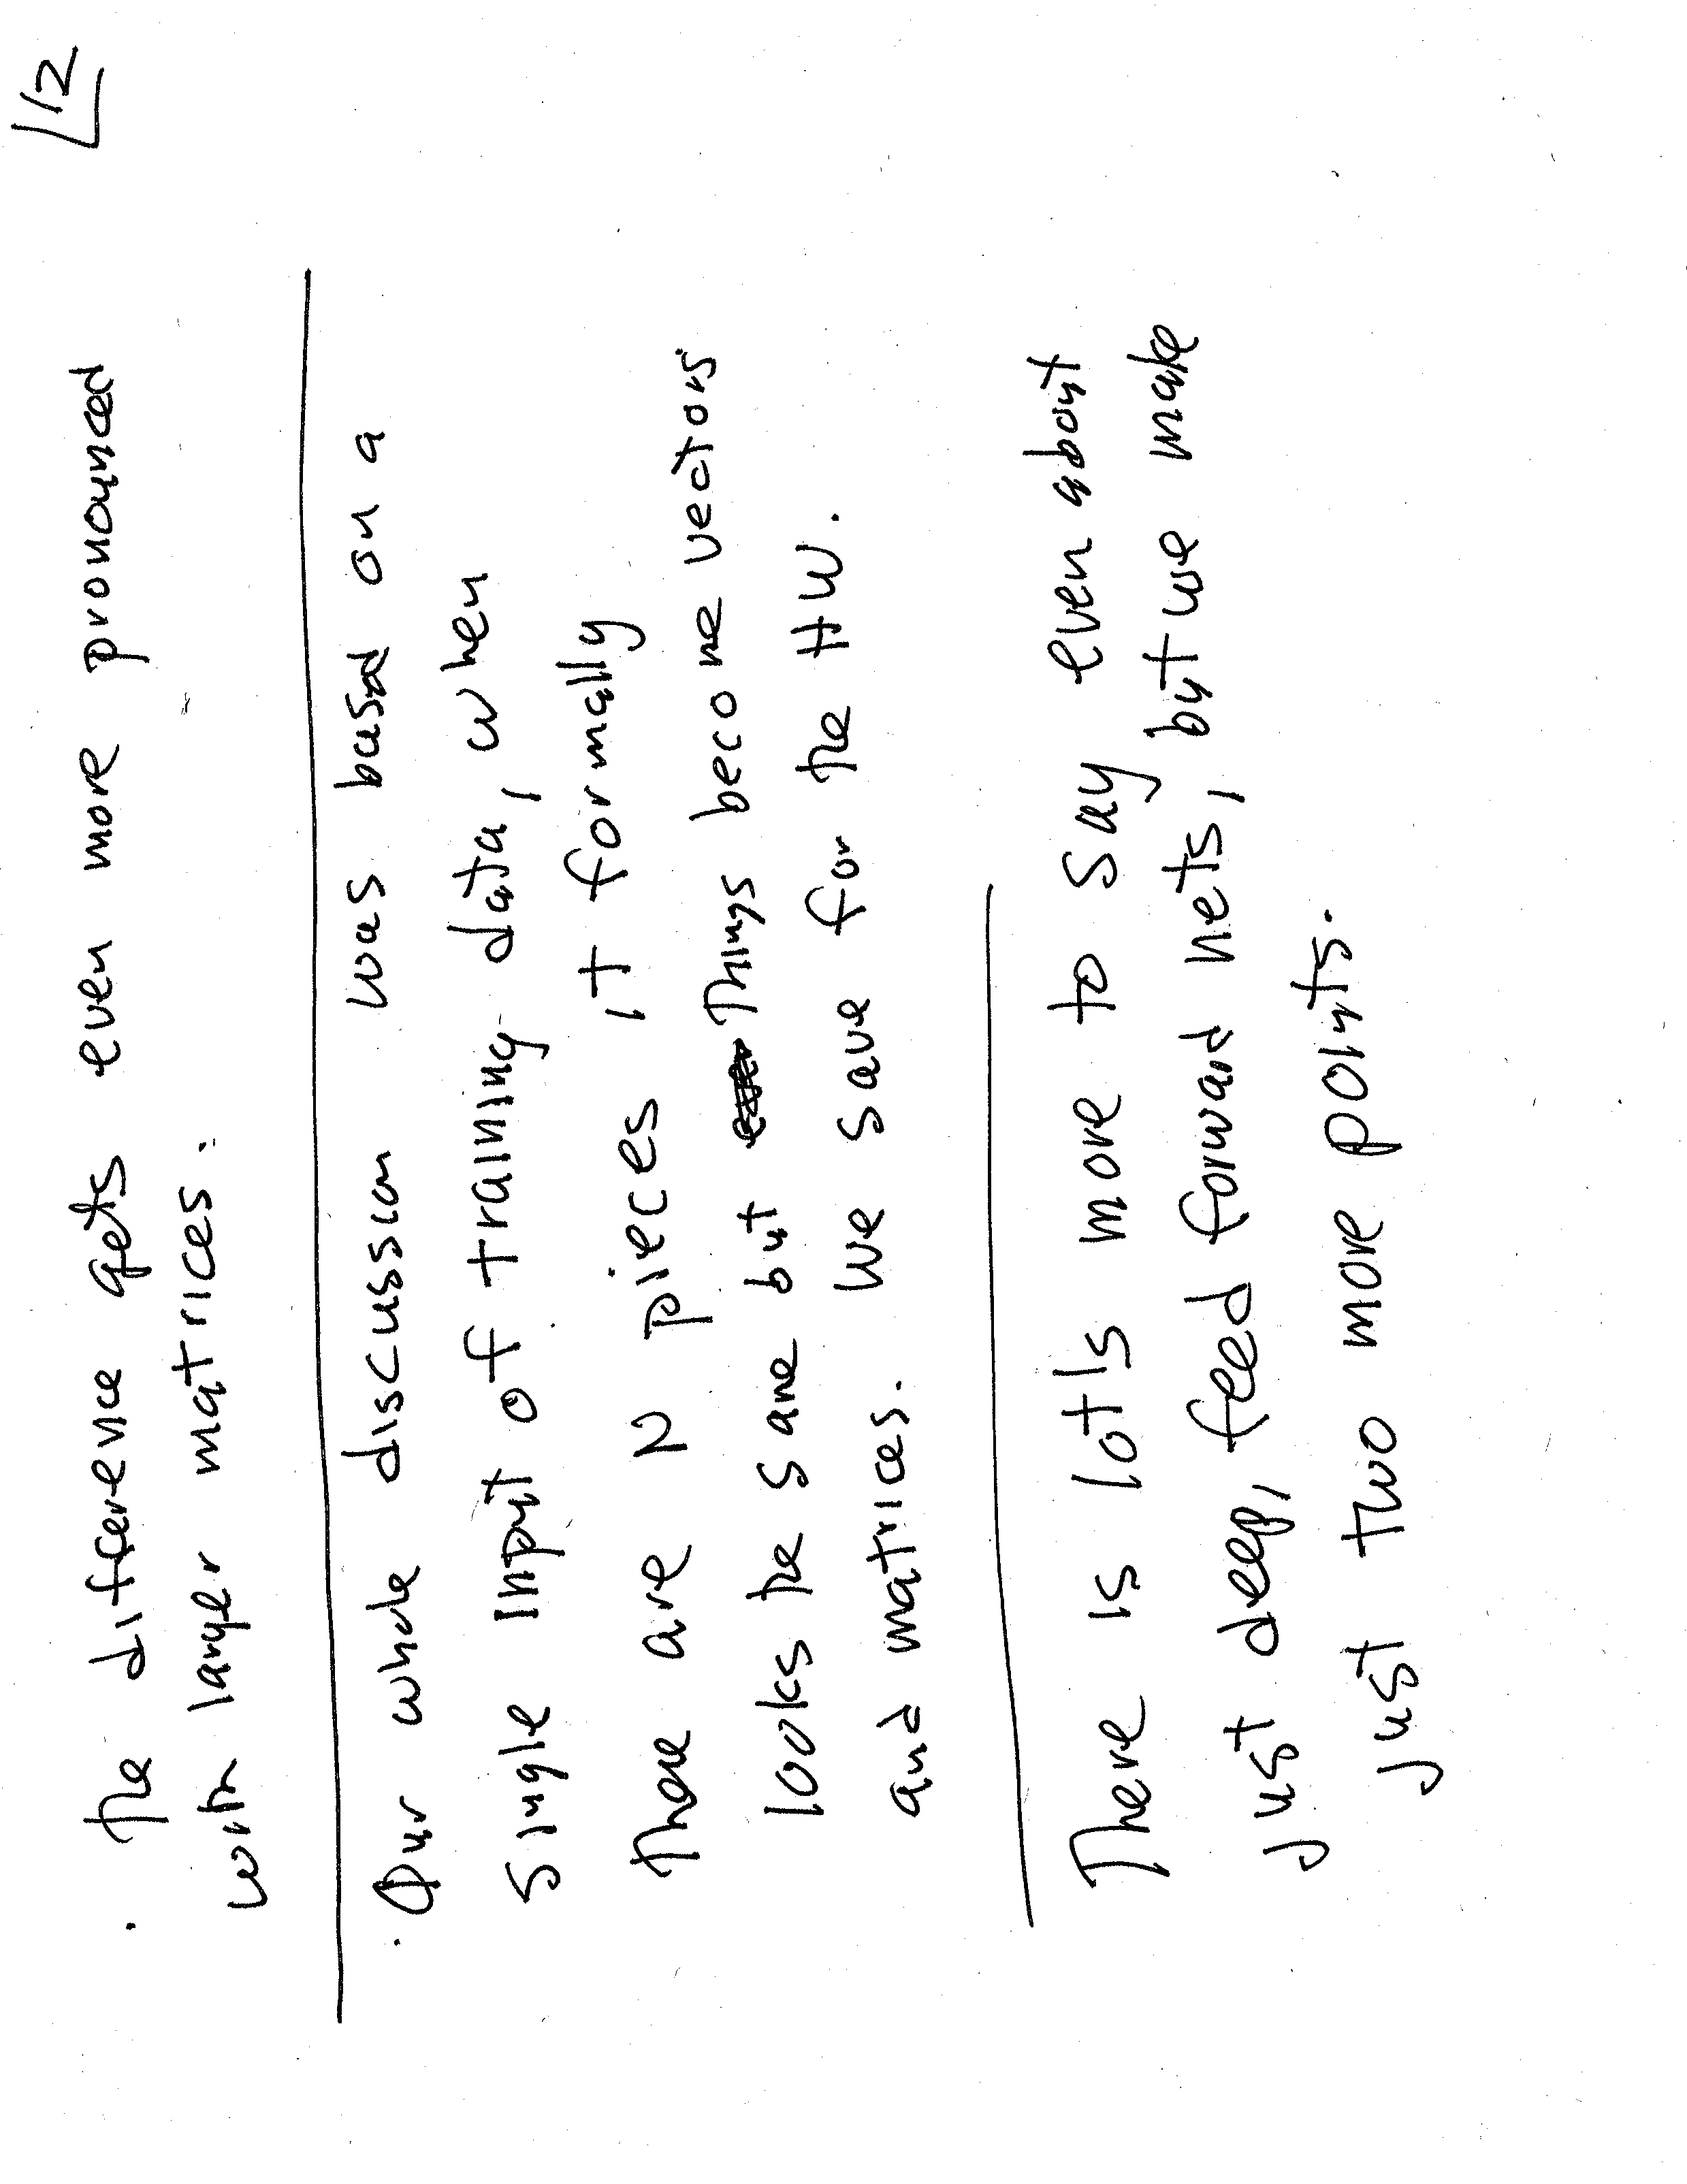 12
· The difference gets even more pronounced
with larger matrices.
· Our whole discussion was based on a
single input of training data, when
there are N pieces it formally
looks the same but things become vectors
and matrices. We save for the HW.
There is lots more to say even about
just deep, feed forward nets, but we make
just two more points.